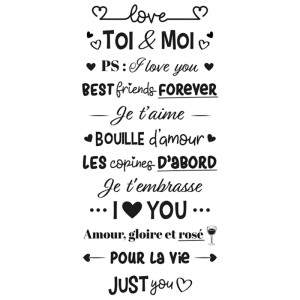 love
TOI & MOI
PS : I love you
BEST friends FOREVER
Je t'aime
BOUILLE d'amour
LES copines D'ABORD
Je t'embrasse
... I ♥ YOU ...
Amour, gloire et rosé
POUR LA VIE
JUST you